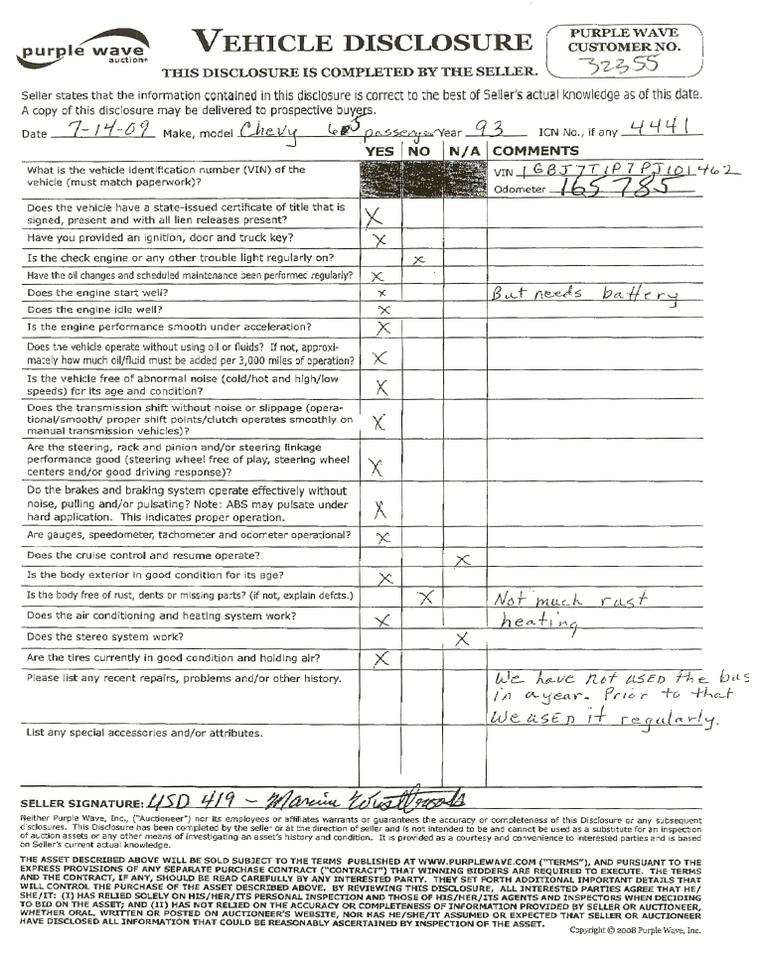 purple wave
auction
VEHICLE DISCLOSURE
THIS DISCLOSURE IS COMPLETED BY THE SELLER.
PURPLE WAVE
CUSTOMER NO.
32355
Seller states that the information contained in this disclosure is correct to the best of Seller's actual knowledge as of this date.
A copy of this disclosure may be delivered to prospective buyers.
Date 7-14-09 Make, model Chevy 65 passenger Year 93 ICN No., if any 4441
YES NO N/A COMMENTS
What is the vehicle identification number (VIN) of the VIN 1GBJ7T1P7PJ101462
vehicle (must match paperwork)? Odometer 165785
Does the vehicle have a state-issued certificate of title that is
signed, present and with all lien releases present? X
Have you provided an ignition, door and truck key? X
Is the check engine or any other trouble light regularly on? X
Have the oil changes and scheduled maintenance been performed regularly? X
Does the engine start well? X But needs battery
Does the engine idle well? X
Is the engine performance smooth under acceleration? X
Does the vehicle operate without using oil or fluids? If not, approxi-
mately how much oil/fluid must be added per 3,000 miles of operation? X
Is the vehicle free of abnormal noise (cold/hot and high/low
speeds) for its age and condition? X
Does the transmission shift without noise or slippage (opera-
tional/smooth/ proper shift points/clutch operates smoothly on X
manual transmission vehicles)?
Are the steering, rack and pinion and/or steering linkage
performance good (steering wheel free of play, steering wheel X
centers and/or good driving response)?
Do the brakes and braking system operate effectively without
noise, pulling and/or pulsating? Note: ABS may pulsate under X
hard application. This indicates proper operation.
Are gauges, speedometer, tachometer and odometer operational? X
Does the cruise control and resume operate? X
Is the body exterior in good condition for its age? X
Is the body free of rust, dents or missing parts? (if not, explain defcts.) X Not much rust
Does the air conditioning and heating system work? X heating
Does the stereo system work? X
Are the tires currently in good condition and holding air? X
Please list any recent repairs, problems and/or other history. We have not used the bus
in a year. Prior to that
we used it regularly.
List any special accessories and/or attributes.
SELLER SIGNATURE: USD 419 -
Neither Purple Wave, Inc., ("Auctioneer") nor its employees or affiliates warrants or guarantees the accuracy or completeness of this Disclosure or any subsequent
disclosures. This Disclosure has been completed by the seller or at the direction of seller and is not intended to be and cannot be used as a substitute for an inspection
of auction assets or any other means of investigating an asset's history and condition. It is provided as a courtesy and convenience to interested parties and is based
on Seller's current actual knowledge.
THE ASSET DESCRIBED ABOVE WILL BE SOLD SUBJECT TO THE TERMS PUBLISHED AT WWW.PURPLEWAVE.COM ("TERMS"), AND PURSUANT TO THE
EXPRESS PROVISIONS OF ANY SEPARATE PURCHASE CONTRACT ("CONTRACT") THAT WINNING BIDDERS ARE REQUIRED TO EXECUTE. THE TERMS
AND THE CONTRACT, IF ANY, SHOULD BE READ CAREFULLY BY ANY INTERESTED PARTY. THEY SET FORTH ADDITIONAL IMPORTANT DETAILS THAT
WILL CONTROL THE PURCHASE OF THE ASSET DESCRIBED ABOVE. BY REVIEWING THIS DISCLOSURE, ALL INTERESTED PARTIES AGREE THAT HE/
SHE/IT: (I) HAS RELIED SOLELY ON HIS/HER/ITS PERSONAL INSPECTION AND THOSE OF HIS/HER/ITS AGENTS AND INSPECTORS WHEN DECIDING
TO BID ON THE ASSET; AND (II) HAS NOT RELIED ON THE ACCURACY OR COMPLETENESS OF INFORMATION PROVIDED BY SELLER OR AUCTIONEER,
WHETHER ORAL, WRITTEN OR POSTED ON AUCTIONEER'S WEBSITE, NOR HAS HE/SHE/IT ASSUMED OR EXPECTED THAT SELLER OR AUCTIONEER
HAVE DISCLOSED ALL INFORMATION THAT COULD BE REASONABLY ASCERTAINED BY INSPECTION OF THE ASSET.
Copyright © 2008 Purple Wave, Inc.